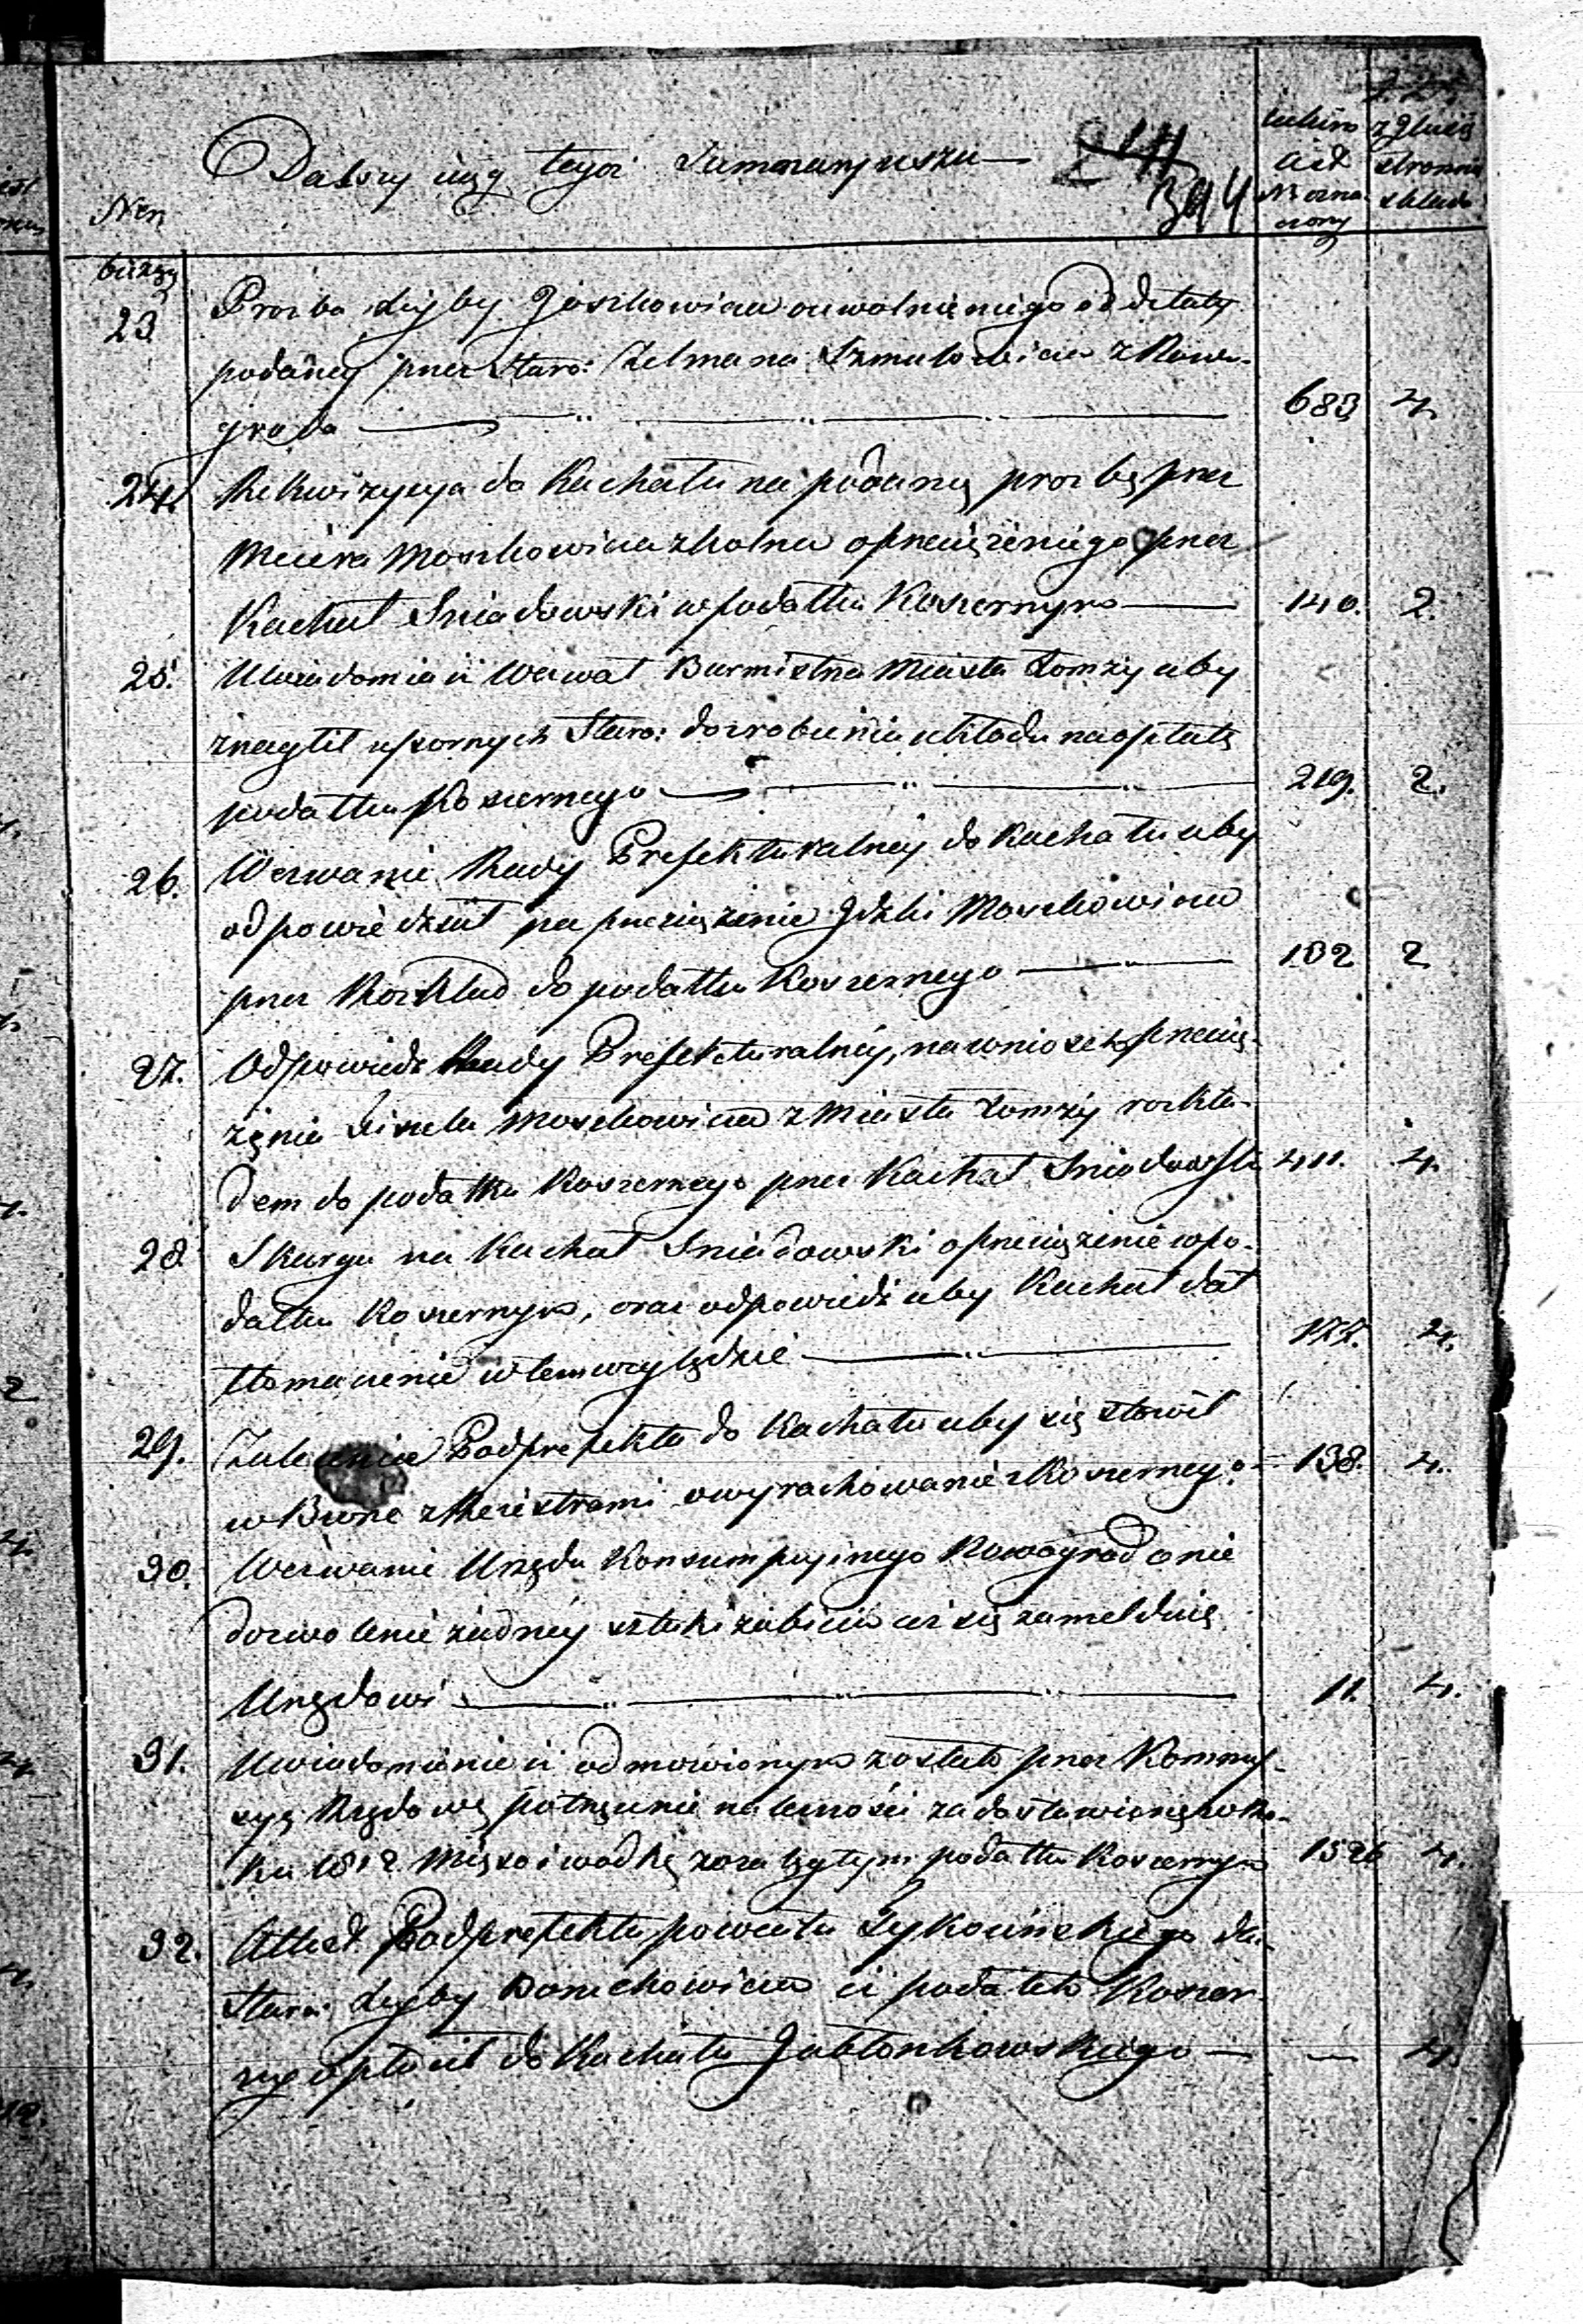 Dalszy ciąg tegoż Summaryuszu
394
Nro
bieżący
Akt
Nr ozna
czony
z Iluiq
stronnic
składa
23 Prozba Leyby Joszkowicza o uwolnienie go od skłatty
podaney przez Staro: Zelmana Szmulowicza z Nowo-
groda 683 4.
24. Rekwizycya do Kachału na podaną prozbę przez
Meiera Moszkowicza z Kolna o przeciążenie go przez
Kachał Sniadowski w podatku Koszernym 140. 2.
25. Uwiadomia iż Wezwał Burmistrza Miasta Łomży aby
znaglił upornych Staro: do zrobienia układu na opłatę
podatku Koszernego 219. 2.
26. Wezwanie Rady Prefekturalney do Kachału aby
odpowiedział na przeciążenie Idzki Moszkowicza
przez Rozkład do podatku Koszernego 132 2
27. Odpowiedź Rady Prefekturalney, na wniosek przecią-
żenia Moszkowicza z Miasta Łomży rozkła-
dem do podatku Koszernego przez Kachał Sniadowski 411. 4.
28 Skarga na Kachał Sniadowski o przeciążenie w po-
datku Koszernym, oraz odpowiedź aby Kachał dał
tłomaczenie w tem względzie 177. 4.
29. Zalecenie Podprefekta do Kachału aby się stawił
w Biorze z Reiestrami o wyrachowanie z Koszernego 138. 4.
30. Wezwanie Urzędu Konsumpcyinego Nowogrod o nie
dozwolenie żadney sztuki zabicia aż się zamelduię
Urzędowi 11. 4.
31. Uwiadomienie iż odmowionym zostało przez Kommis-
syą Rządową potrącenie należności za dostawione w Ro-
ku 1812 Mięso i wodkę zaległym podatku Koszernym 1526 4.
32. Attest Podprefekta powiatu Tykocińskiego dla
Staro: Leyby Boruchowicza iż podatek Koszer-
ny opłacił do Kachału Jabłonkowskiego — 4.